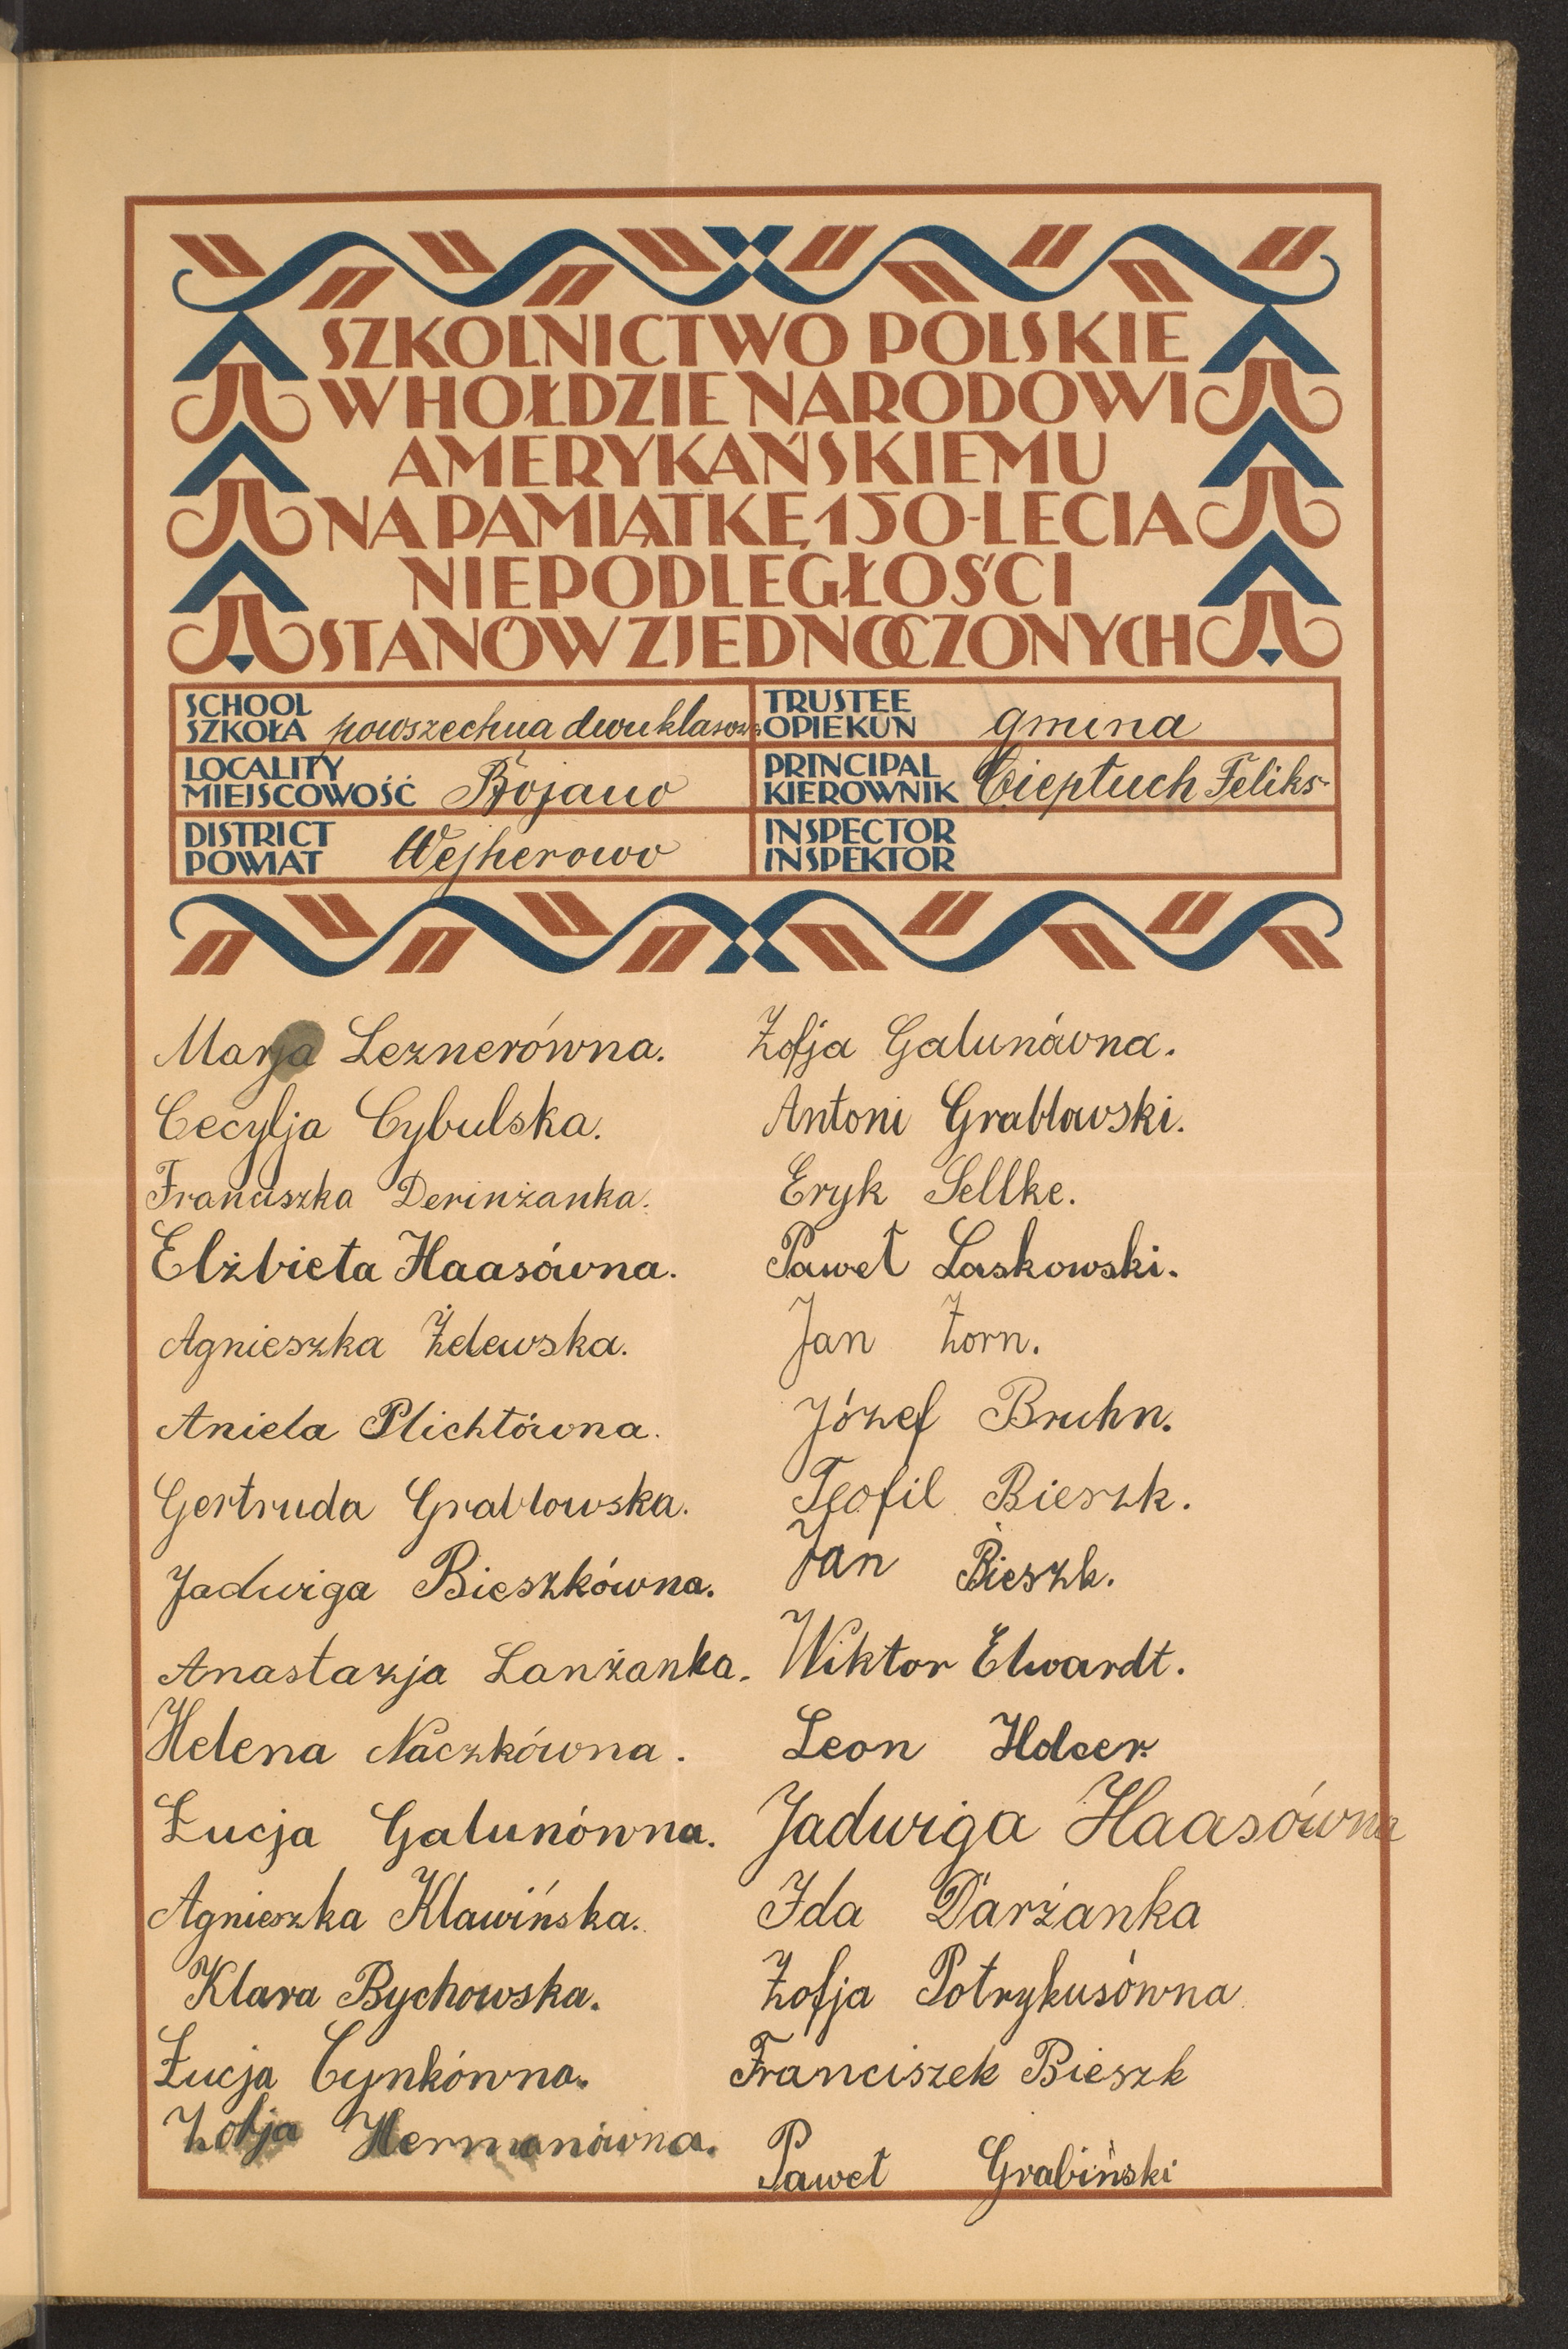 SZKOLNICTWO POLSKIE
W HOŁDZIE NARODOWI
AMERYKAŃSKIEMU
NA PAMIĄTKĘ 150-LECIA
NIEPODLEGŁOŚCI
STANÓW ZJEDNOCZONYCH
SCHOOL
SZKOŁA powszechna dwuklasowa
TRUSTEE
OPIEKUN gmina
LOCALITY
MIEJSCOWOŚĆ Bojano
PRINCIPAL
KIEROWNIK Ciepłuch Feliks
DISTRICT
POWIAT Wejherowo
INSPECTOR
INSPEKTOR
Marja Leznerówna.
Cecylja Cybulska.
Franciszka Derinżanka.
Elżbieta Haasówna.
Agnieszka Żelewska.
Aniela Plichtówna.
Gertruda Grabłowska.
Jadwiga Bieszkówna.
Anastazja Lanżanka.
Helena Naczkówna.
Łucja Galunówna.
Agnieszka Klawińska.
Klara Bychowska.
Łucja Cynkówna.
Zofja Hermanówna.
Zofja Galunówna.
Antoni Grabłowski.
Eryk Sellke.
Paweł Laskowski.
Jan Zorn.
Józef Bruhn.
Teofil Bieszk.
Jan Bieszk.
Wiktor Elwardt.
Leon
Jadwiga Haasówna
Ida Darżanka
Zofja Potrykusówna
Franciszek Bieszk
Paweł Grabiński